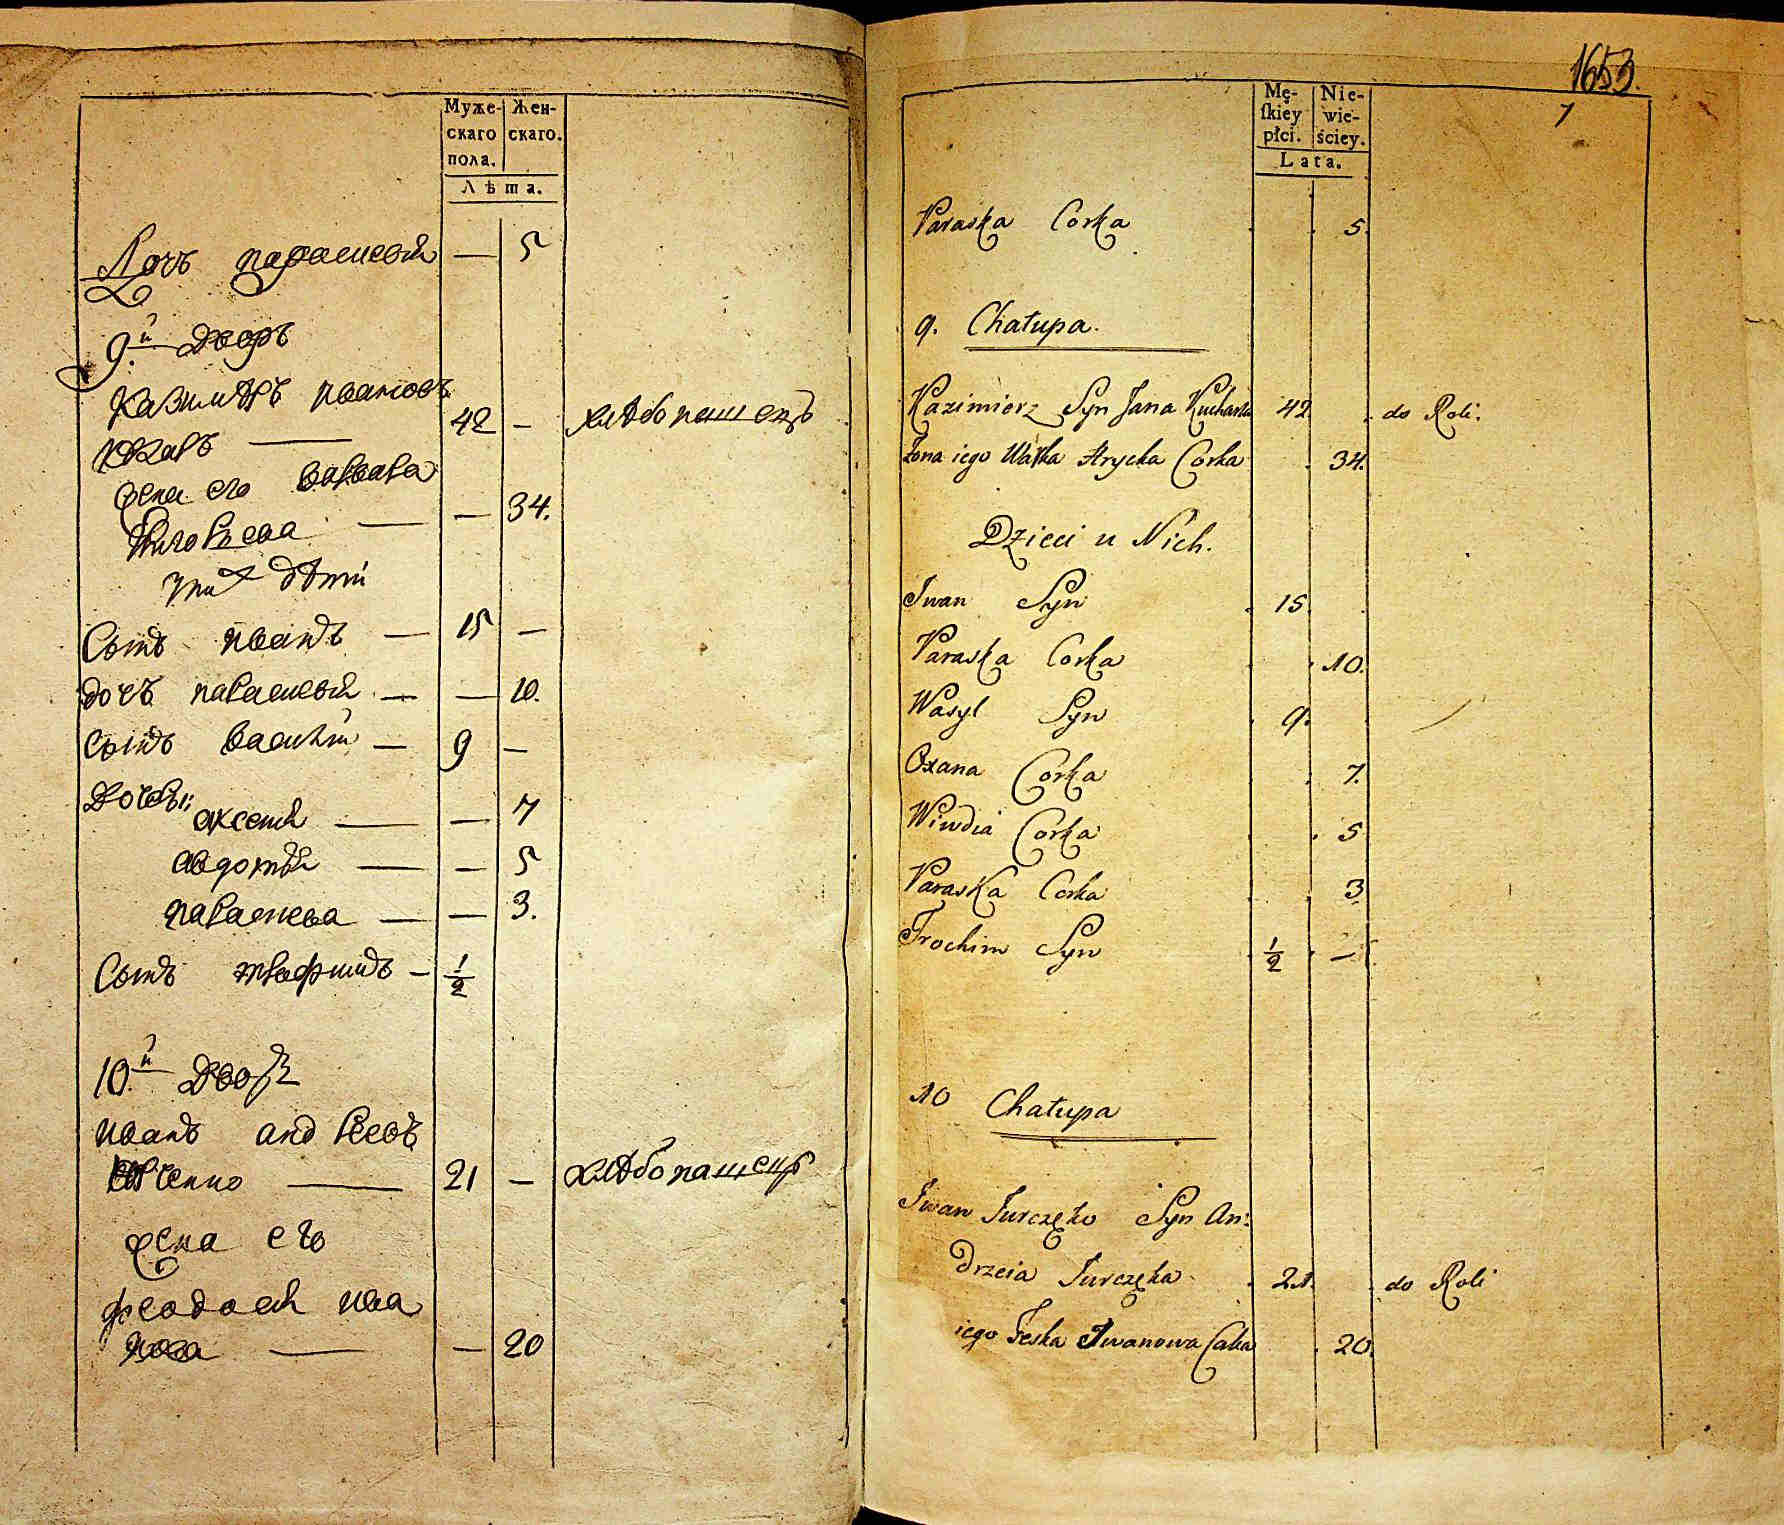 Муже-
скаго
пола.
Жен-
скаго.
Лѣта.
Дочъ парасковія — 5
9.й дворъ
Казимѣръ ивановъ
— 42 — хлѣбопашецъ
жена его варвара
— — 34.
у них дѣти
Сынъ иванъ — 15 —
дочъ парасковія — — 10.
Сынъ василій — 9 —
Дочеры:
аксенія — — 7
авдотія — — 5
параскева — — 3.
Сынъ трофимъ — 1/2
10.й дворъ
иванъ андреевъ
— 21 — хлѣбопашецъ
жена его
феодосія ива
нова — — 20
1653.
7
Mę-
ſkiey
płci.
Nie-
wie-
ściey.
Lata.
Paraska Corka 5.
9. Chałupa.
Kazimierz Syn Jana 42. do Roli.
Żona iego Corka 34.
Dzieci u Nich.
Iwan Syn 15
Paraska Corka 10.
Wasyl Syn 9.
Oxana Corka 7.
Wiwdia Corka 5
Paraska Corka 3.
Trochim Syn 1/2 —
10 Chałupa
Iwan Jurczęko Syn An:
drzeia Jurczęka 21. do Roli
iego Feska Iwanowa 20.